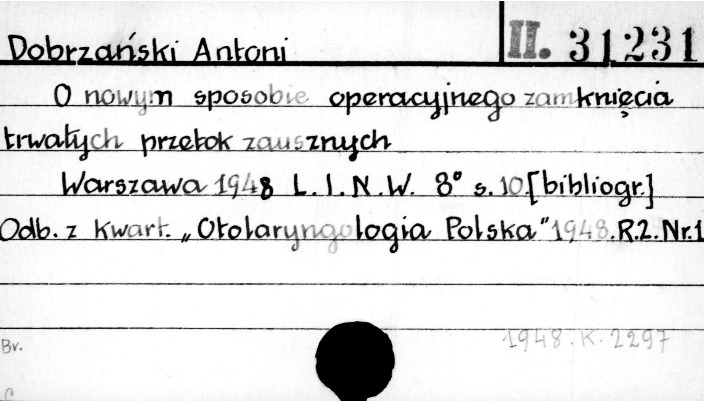 Dobrzański Antoni II. 31231
O nowym sposobie operacyjnego zamknięcia
trwałych przetok zausznych
Warszawa 1948 L.I.N.W. 8° s. 10. [bibliogr.]
Odb. z kwart. „Otolaryngologia Polska" 1948. R.2. Nr.1
Br. 1948. K. 2297